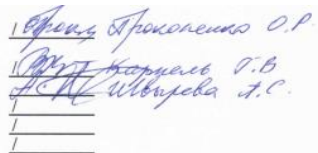 / Прокопенко О.Р.
/ Карпель Г.В
Швырева А.С.
/
/
/